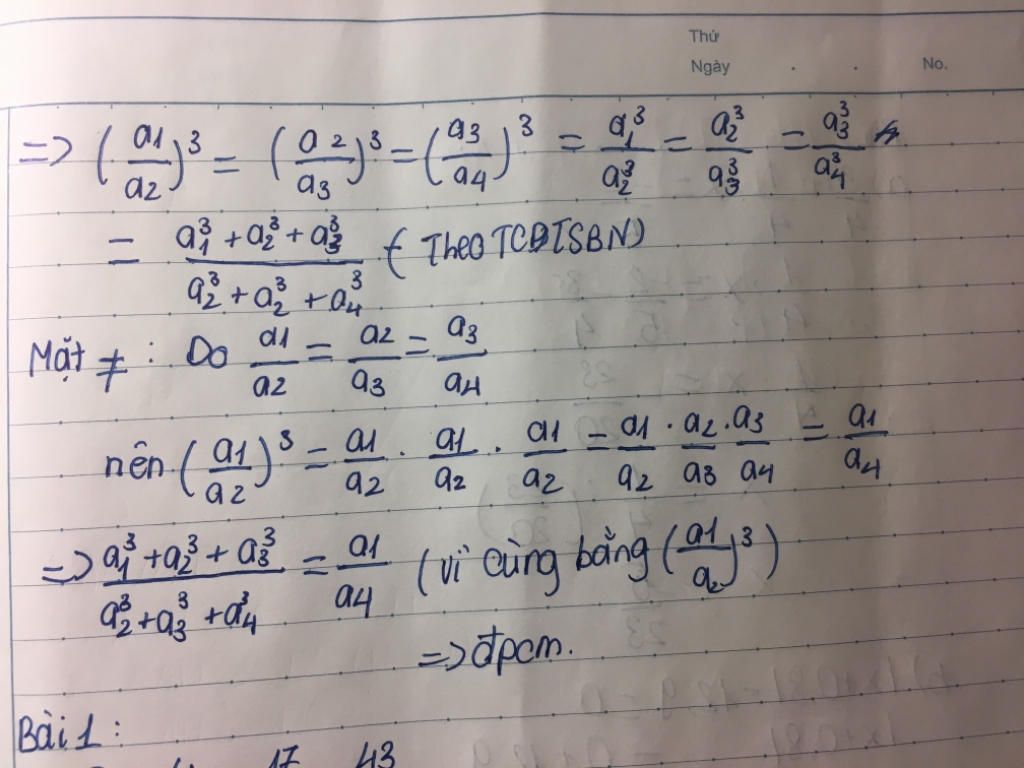 Thứ
Ngày . . No.
=> (a1/a2)³ = (a2/a3)³ = (a3/a4)³ = a₁³/a₂³ = a₂³/a₃³ = a₃³/a₄³
= (a₁³ + a₂³ + a₃³)/(a₂³ + a₂³ + a₄³) (Theo TCDTSBN)
Mặt ≠ : Do a1/a2 = a2/a3 = a3/a4
nên (a1/a2)³ = a1/a2 . a1/a2 . a1/a2 = a1/a2 . a2/a3 . a3/a4 = a1/a4
=> (a₁³ + a₂³ + a₃³)/(a₂³ + a₃³ + a₄³) = a1/a4 (vì cùng bằng (a1/a2)³)
=> đpcm.
Bài 1 :
17 43